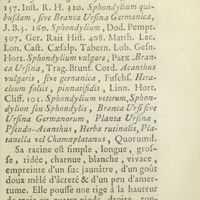 157. Inst. R. H. 320. Sphondylium qui-
busdam, sive Branca Ursina Germanica,
J. B. 3. 160. Sphondylium, Dod. Pempt.
307. Ger. Raii Hist. 408. Matth. Lac.
Lon. Cast. Cæsalp. Tabern. Lob. Gesn.
Hort. Sphondylium vulgare, Park. Bran-
ca Ursina, Trag. Brunf. Cord. Acanthus
vulgaris, sive germanica, Fuschf. Hera-
cleum foliis, pinnatifidis, Linn. Hort.
Cliff. 103. Sphondylium veterum, Sphon-
dylion seu Sphondylis, Branca Urfi sive
Ursina Germanorum, Planta Ursina,
Pseudo-Acanthus, Herba rutinalis, Pla-
tanella vel Champlatanus, Quorumd.
Sa racine est simple, longue, gros-
se, ridée, charnue, blanche, vivace,
empreinte d'un suc jaunâtre, d'un goût
doux mêlé d'âcreté & d'un peu d'amer-
tume. Elle pousse une tige à la hauteur
de trois ou quatre pieds, droite, ron-